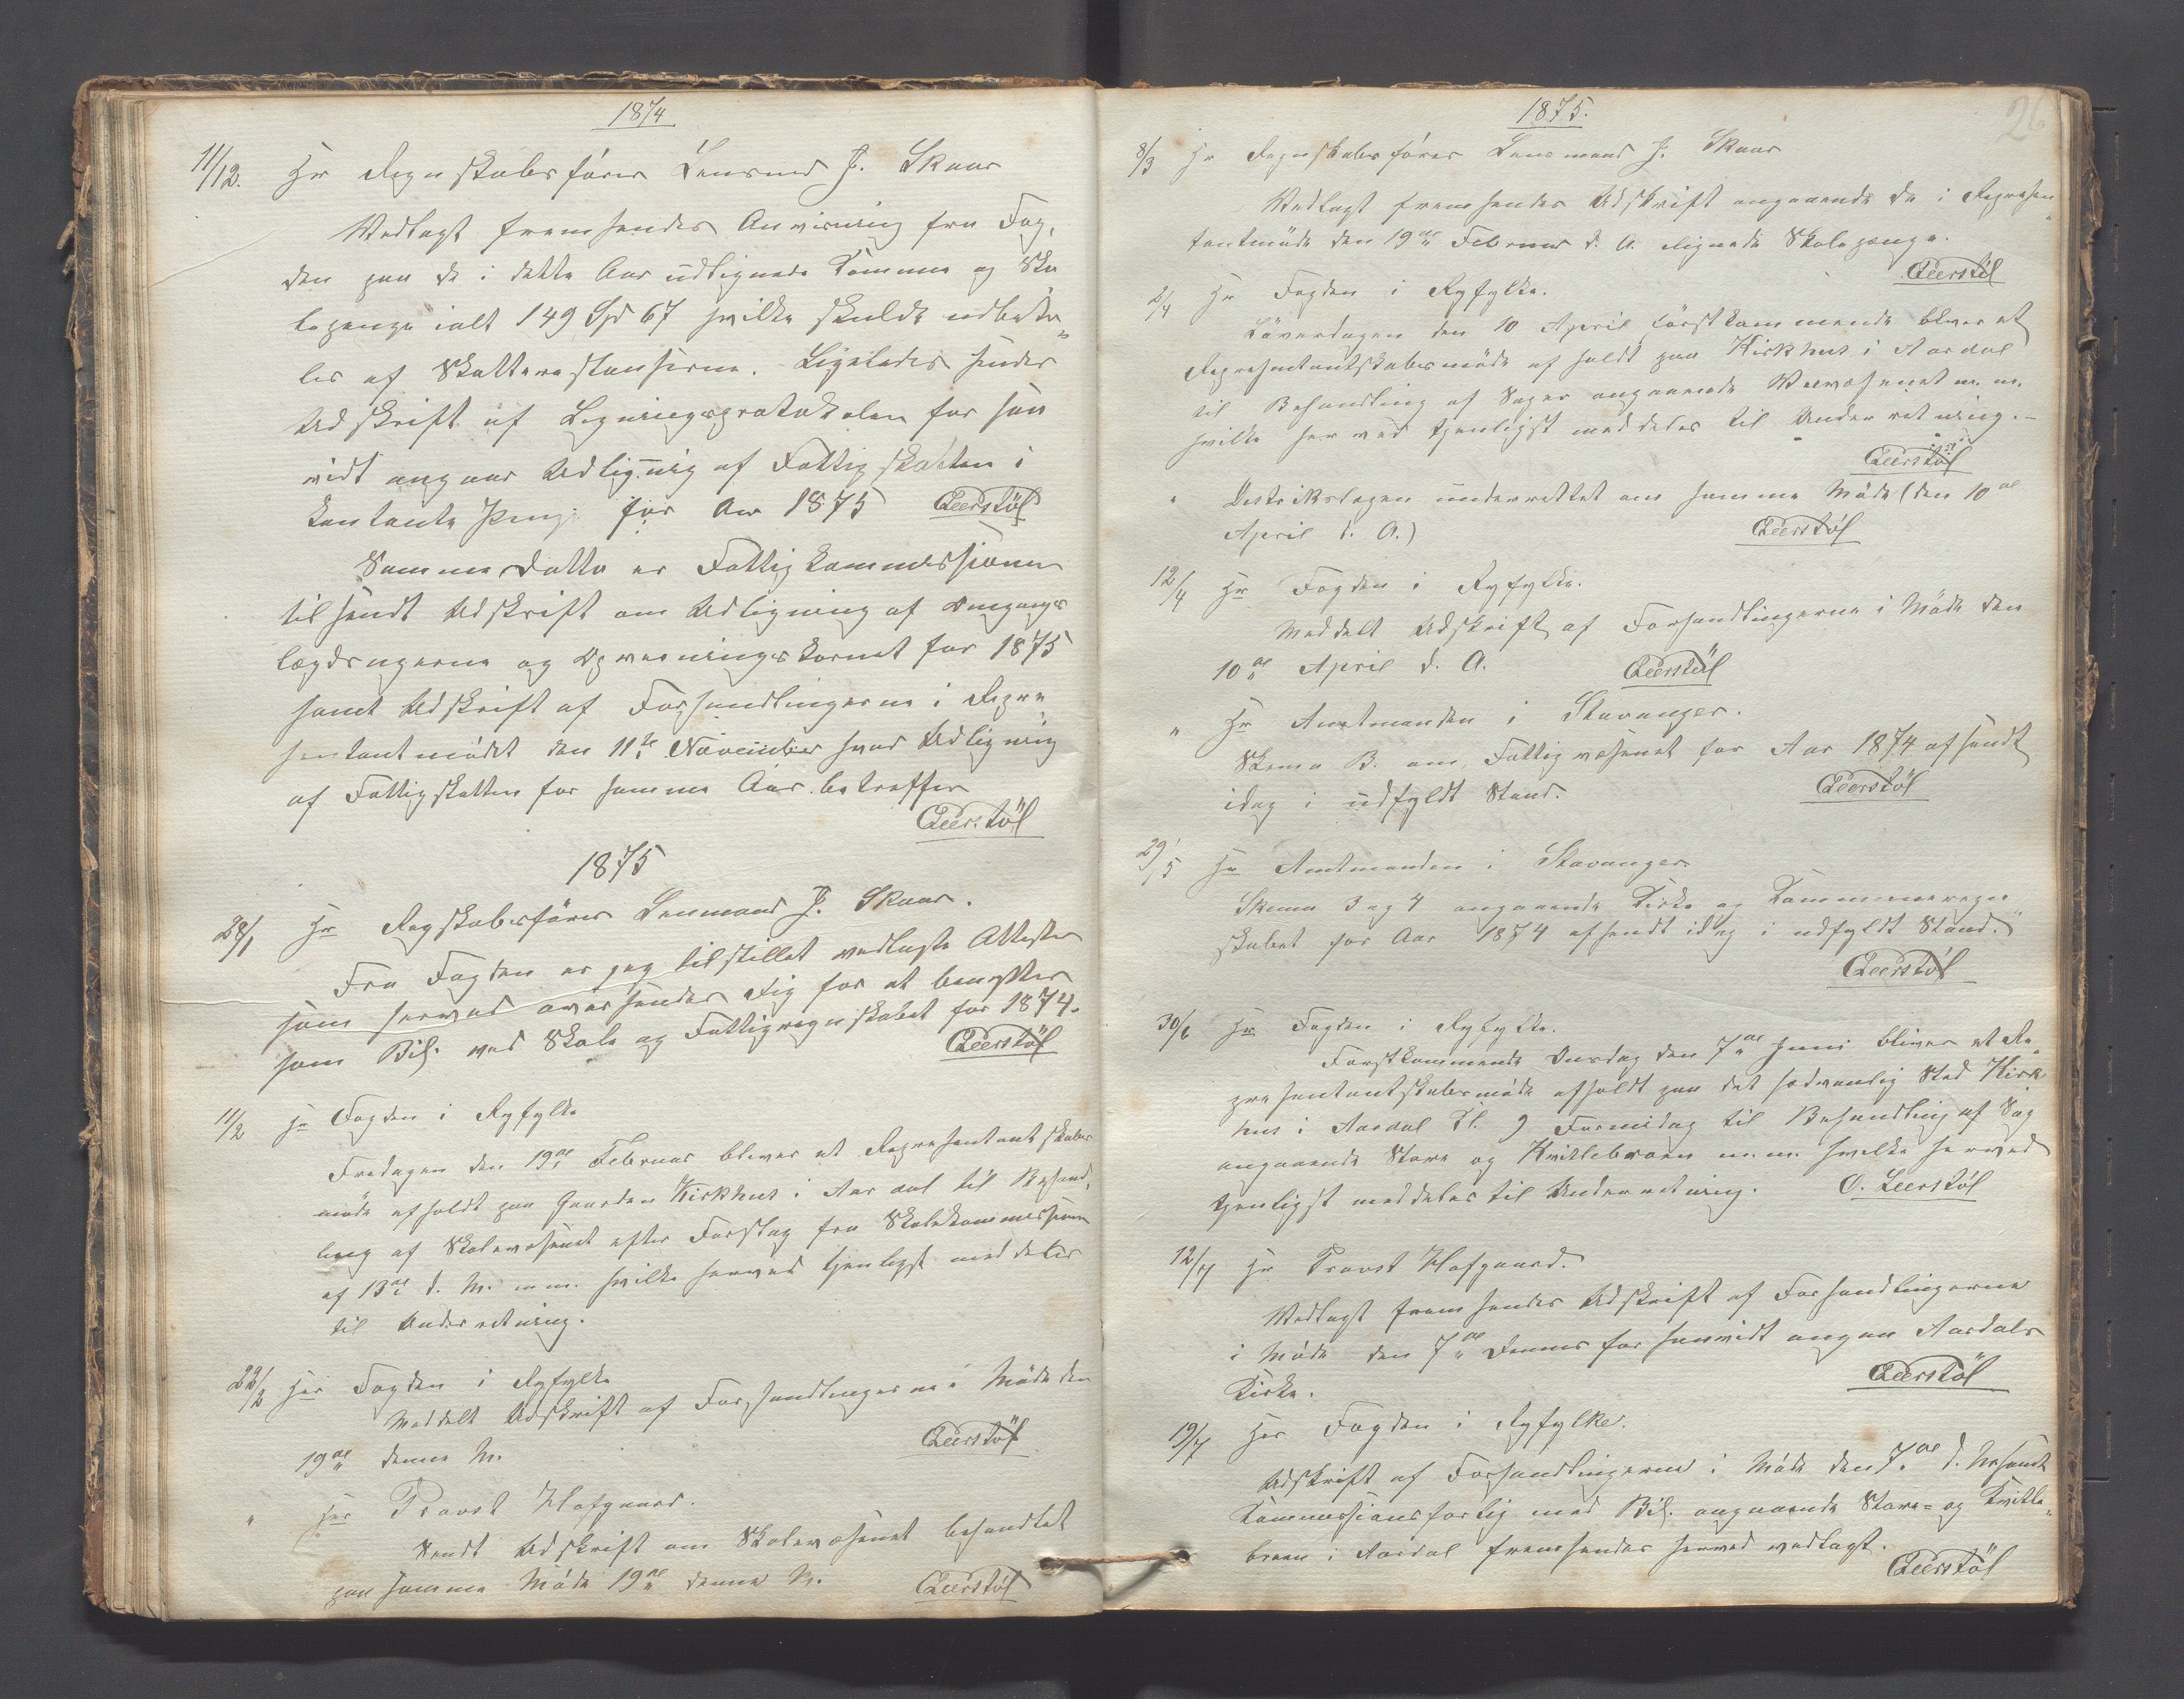 1874
11/12. Hr Regnskabsfører Lensmd J. Skaar
Vedlagt fremsendes Anvisning fra Fog,
den paa de i dette Aar udlignede Komune og Sko
lepenge ialt 149 Spd 67 hvilke skulde udbeta„
les af Skatterestanserne. Ligeledes sendes
Udskrift af Ligningsprotokolen for saa
vidt angaar Udligning af Fattigskatten i
Kontante Penge for Aar 1875 OLeerstøl
Samme Datto er Fattigkommissionen
tilsendt Udskrift om Udligning af Omgangs
lægdsngerne og Opvarningskornet for 1875
samt Udskrift af Forhandlingerne i Repre
sentantmødet den 11te November hvad Udligning
af Fattigskatten for samme Aar betreffer
OLeerstøl
1875
28/1 Hr Regskabsfører Lensmand J. Skaar.
Fra Fogden er jeg tilstillet vedlagte Attester
som herved oversendes Dig for at benyttes
som Bil. ved Skole og Fattigregnskabet for 1874.
OLeerstøl
11/2 Hr Fogden i Ryfylke
Fredagen den 19de Februar bliver et Representantskabs
møde afholdt paa Gaarden Kirkhus i Aardal til Behand,
ling af Skolevæsenet efter Forslag fra Skolekommissionen
af 13de d. M. m.m. hvilke herved tjenligst meddeles
til Underretning.
22/2 Herr Fogden i Ryfylke
Meddelt Udskrift af Forhandlingerne i Møde den
19de denne M. OLeerstøl
" Herr Provst Hofgaard.
Sendt Udskrift om Skolevæsenet behandlet
paa samme Møde 19de denne M. OLeerstøl
1875. 26
8/3 Hr Regnskabsfører Lensmand J. Skaar
Vedlagt fremsendes Udskrift angaaende de i Represen„
tantmøde den 19de Februar d. A. lignede Skolepenge.
OLeerstøl
2/4 Hr Fogden i Ryfylke.
Løverdagen den 10 April førstkommende bliver et
Representantskabsmøde afholdt paa Kirkhus i Aardal
til Behandling af Sager angaaende Veivæsenet m. m.
hvilke herved tjenligst meddeles til Underretning. –
OLeerstøl
" Distrikslægen underrettet om samme Møde (den 10de
April d. A.) OLeerstøl
12/4 Hr Fogden i Ryfylke.
Meddelt Udskrift af Forhandlingerne i Møde den
10de April d. A. OLeerstøl
" Hr Amtmanden i Stavanger.
Skema B. om Fattigvæsenet for Aar 1874 afsendt
idag i udfyldt Stand. OLeerstøl
29/5 Hr Amtmanden i Stavanger
Skema 3 og 4 angaaende Kirke og Kommuneregn
skabet for Aar 1874 afsendt idag i udfyldt Stand.
OLeerstøl
30/6 Hr Fogden i Ryfylke.
Førstkommende Onsdag den 7de Juni bliver et Re„
presentantskabsmøde afholdt paa det sædvanlig Sted Kirk
hus i Aardal Kl. 9 Formidag til Behandling af Sag
angaaende Store og Kvitlebroen m.m. hvilke herved
tjenligst meddeles til Underretning. O. Leerstøl
12/7 Hr Provst Hofgaard.
Vedlagt fremsendes Udskrift af Forhandlingerne
i Møde den 7de dennes for saavidt angaa Aardals
Kirke. OLeerstøl
19/7 Herr Fogden i Ryfylke.
Udskrift af Forhandlingerne i Møde den 7de d. M samt
Kommissionsforlig med Bil. angaaende Store- og Kvitle„
broen i Aardal fremsendes herved vedlagt.
OLeerstøl